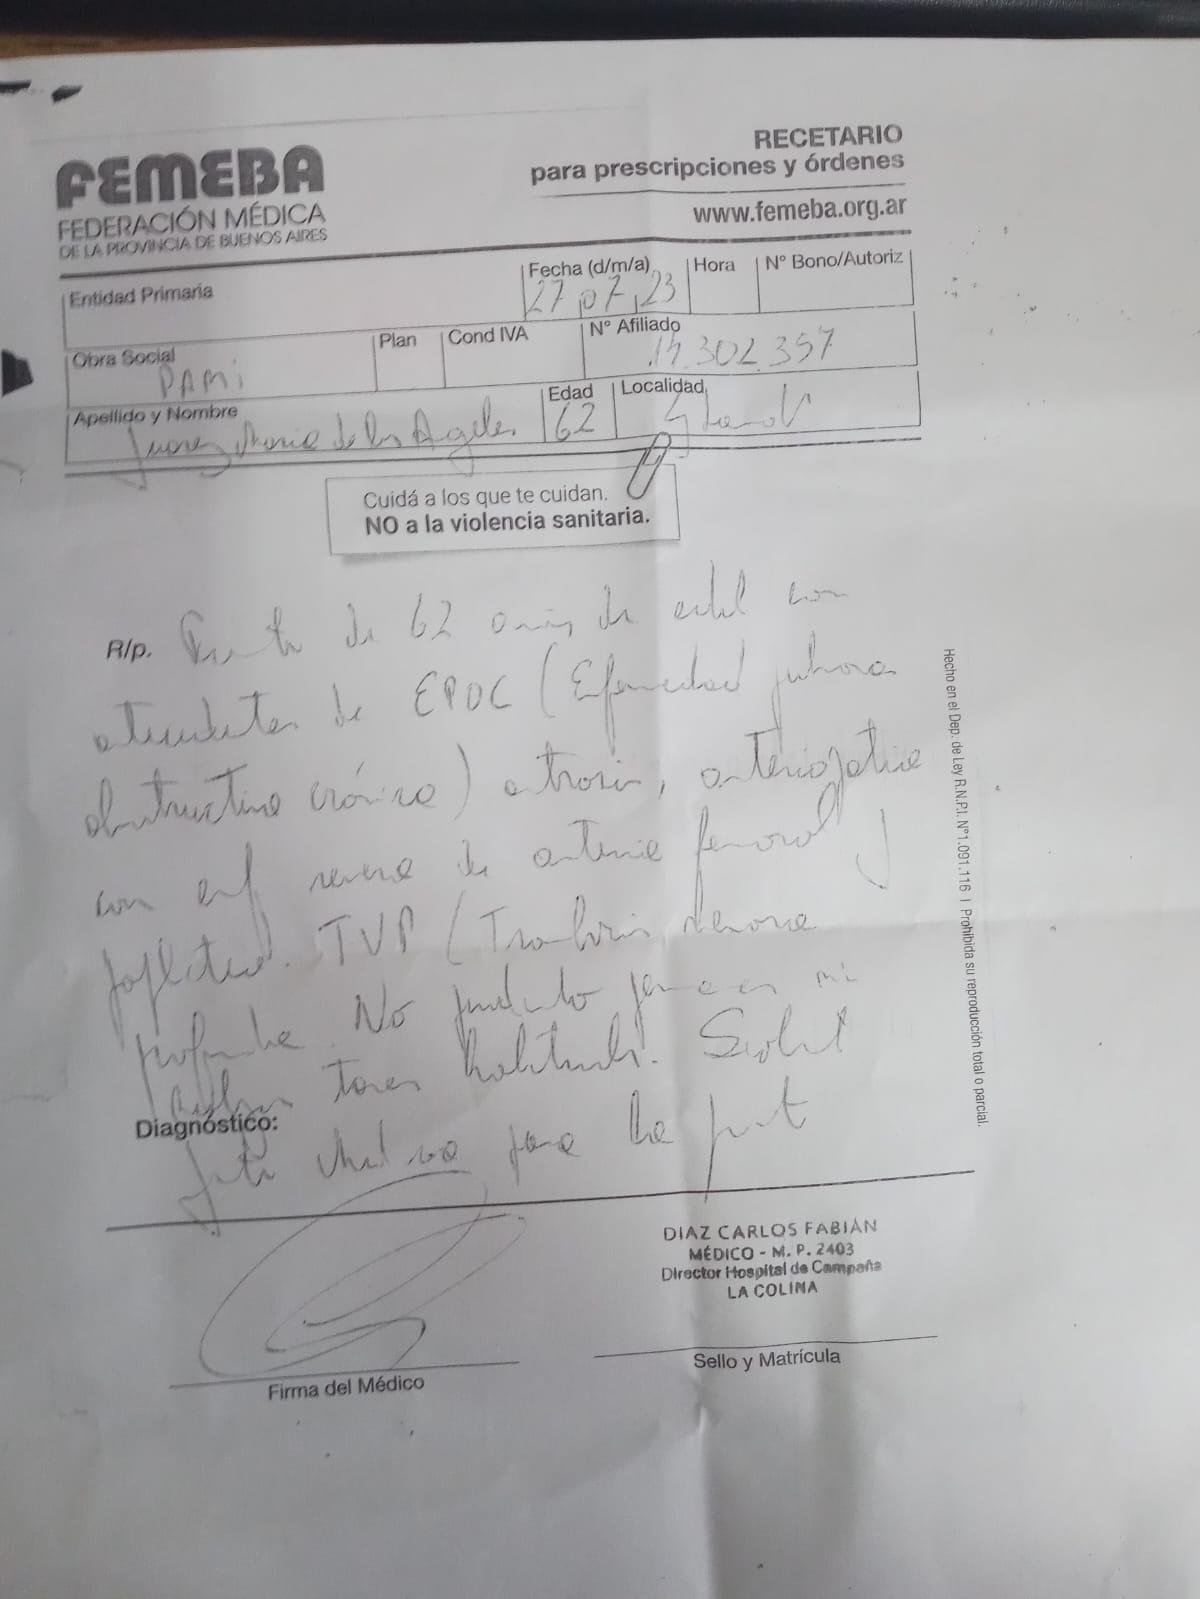 FEMEBA
FEDERACIÓN MÉDICA
DE LA PROVINCIA DE BUENOS AIRES
RECETARIO
para prescripciones y órdenes
www.femeba.org.ar
Entidad Primaria
Fecha (d/m/a) 27,07,23
Hora
Nº Bono/Autoriz
Obra Social PAMI
Plan
Cond IVA
Nº Afiliado 14.302.357
Apellido y Nombre Maria de los Angeles
Edad 62
Localidad
Cuidá a los que te cuidan.
NO a la violencia sanitaria.
R/p. de 62 años de edad con
de EPOC (Enfermedad pulmonar
obstructiva crónica) artrosis,
con severa de arteria femoral
poplitea. TVP (Trombosis venosa
profunda. No pudiendo mi
tareas habituales.
Diagnóstico:
para
Firma del Médico
DIAZ CARLOS FABIÁN
MÉDICO - M. P. 2403
Director Hospital de Campaña
LA COLINA
Sello y Matrícula
Hecho en el Dep. de Ley R.N.P.I. Nº1.091.116 I Prohibida su reproducción total o parcial.